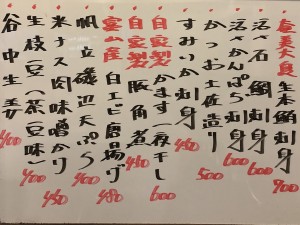 奄美大島 生本鮪刺身 900
活〆石鯛刺身 600
活〆かんぱち刺身 600
かつお土佐造り 500
すみいか刺身 450
自家製 かます一夜干し 600
自家製 豚角煮 450
富山産 白エビ唐揚げ 480
帆立磯辺天ぷら 400
米ナス肉味噌かけ 450
生枝豆(茶豆味) 400
谷中生姜 400